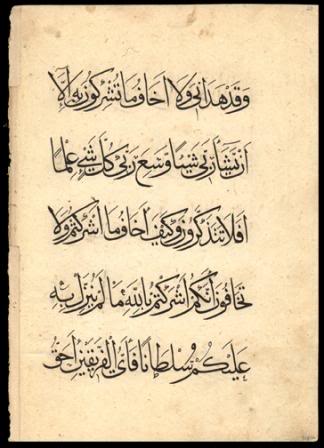 وَقَدْ هَدَانِى وَلَا أَخَافُ مَا تُشْرِكُونَ بِهِ إِلَّا
أَنْ يَشَاءَ رَبِّى شَيْئًا وَسِعَ رَبِّى كُلَّ شَىْءٍ عِلْمًا
أَفَلَا تَتَذَكَّرُونَ وَكَيْفَ أَخَافُ مَا أَشْرَكْتُمْ وَلَا
تَخَافُونَ أَنَّكُمْ أَشْرَكْتُمْ بِاللَّهِ مَا لَمْ يُنَزِّلْ بِهِ
عَلَيْكُمْ سُلْطَانًا فَأَىُّ الْفَرِيقَيْنِ أَحَقُّ